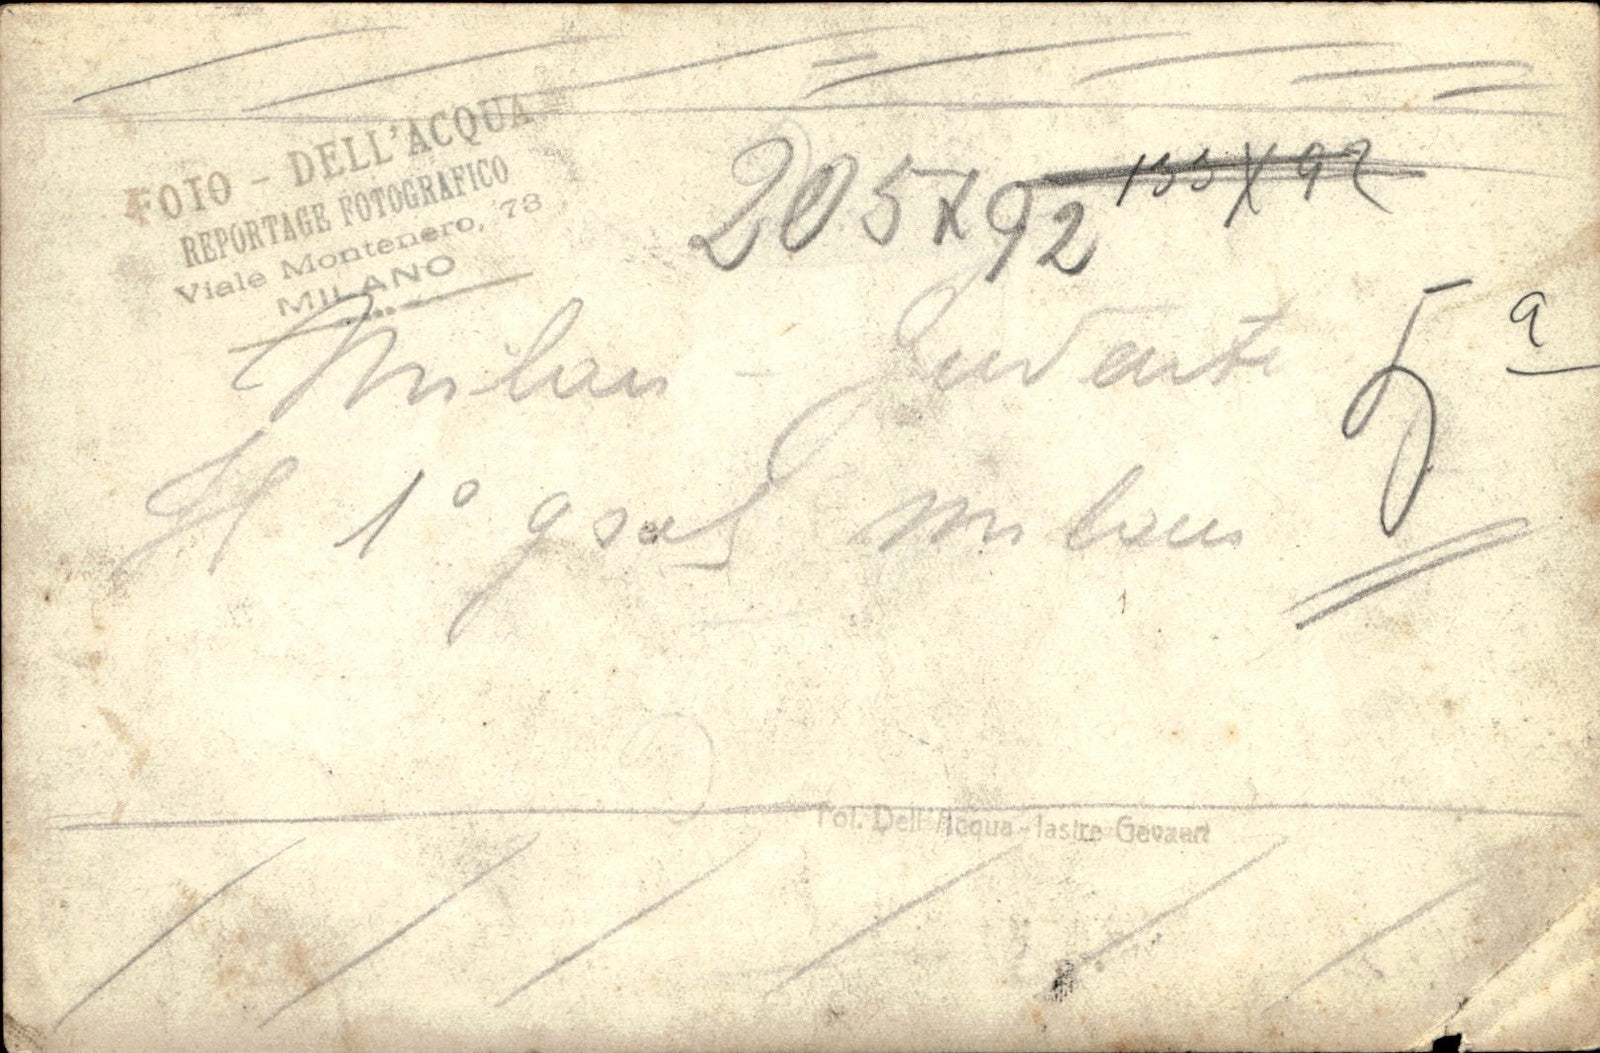 FOTO - DELL'ACQUA
REPORTAGE FOTOGRAFICO
Viale Montenero, 78
MILANO
205 X 92
155 X 92
5ª
Milan - Juventu
Il 1° goal Milan
Fot. Dell'Acqua - lastre Gevaert